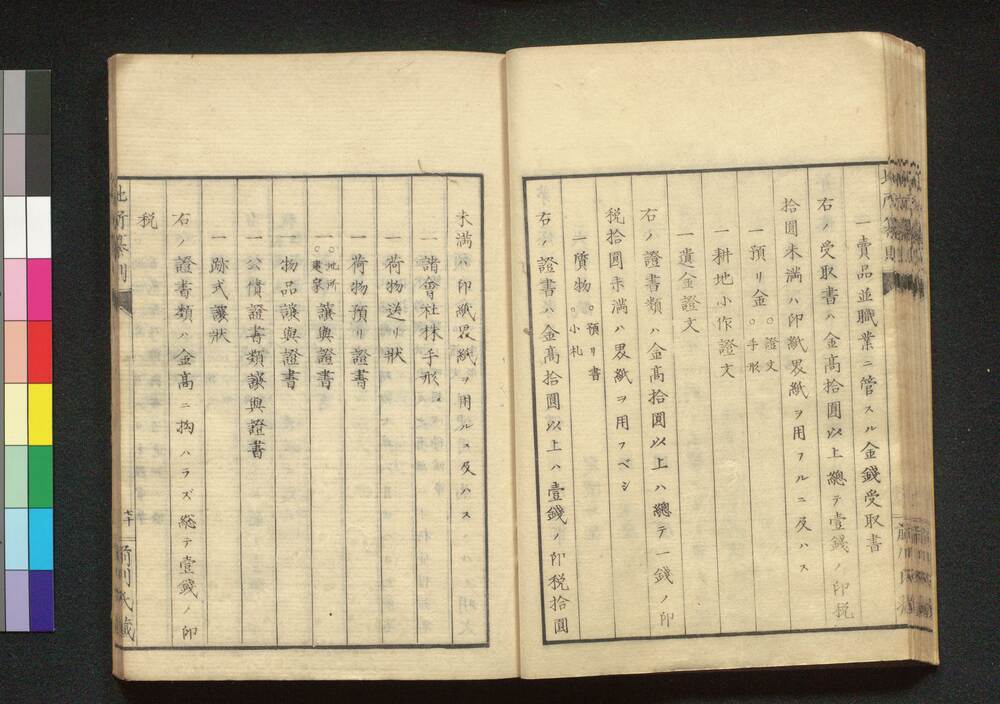 一賣品並職業ニ管スル金錢受取書
右ノ受取書ハ金高拾圓以上總テ壹錢ノ印税
拾圓未満ハ印紙罫紙ヲ用フルニ及ハス
一預リ金 ○證文 ○手形
一耕地小作證文
一遺金證文
右ノ證書類ハ金高拾圓以上ハ總テ一錢ノ印
税拾圓未満ハ罫紙ヲ用フベシ
一質物 ○預リ書 ○小札
右ノ證書ハ金高拾圓以上ハ壹錢ノ印税拾圓
未満ハ印紙罫紙ヲ用ルニ及ハス
一諸會社株手形
一荷物送リ狀
一荷物預リ證書
○地所 ○建家 讓與證書
物品讓與證書
一公債證書類讓與證書
一跡式讓狀
右ノ證書類ハ金高ニ拘ハラズ總テ壹錢ノ印
税
地所纂則
七十
前川氏藏